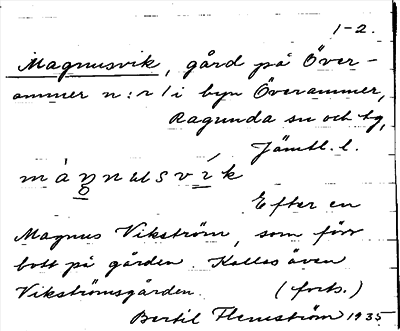 1-2.
Magnusvik, gård på Över-
ammer n:r 1 i byn Överammer,
Ragunda sn och tg,
Jämtl. l.
màŋnɯsvík
Efter en
Magnus Vikström, som förr
bott på gården. Kallas även
Vikströmsgården. (forts.)
Bertil Flemström 1935